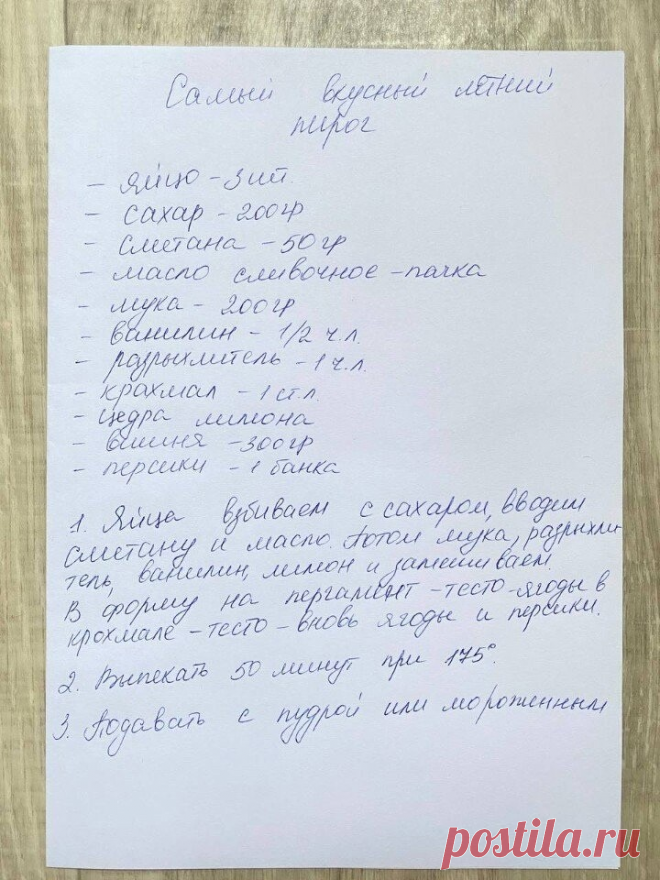 Самый вкусный летний
пирог
- яйцо - 3 шт.
- сахар - 200гр
- сметана - 50гр
- масло сливочное - пачка
- мука - 200гр
- ванилин - 1/2 ч.л.
- разрыхлитель - 1 ч.л.
- крахмал - 1 ст.л.
- цедра лимона
- вишня - 300гр
- персики - 1 банка
1. Яйца взбиваем с сахаром, вводим
сметану и масло. Потом мука, разрыхли-
тель, ванилин, лимон и замешиваем.
В форму на пергамент - тесто - ягоды в
крохмале - тесто - вновь ягоды и персики.
2. Выпекать 50 минут при 175°.
3. Подавать с пудрой или мороженным
postila.ru